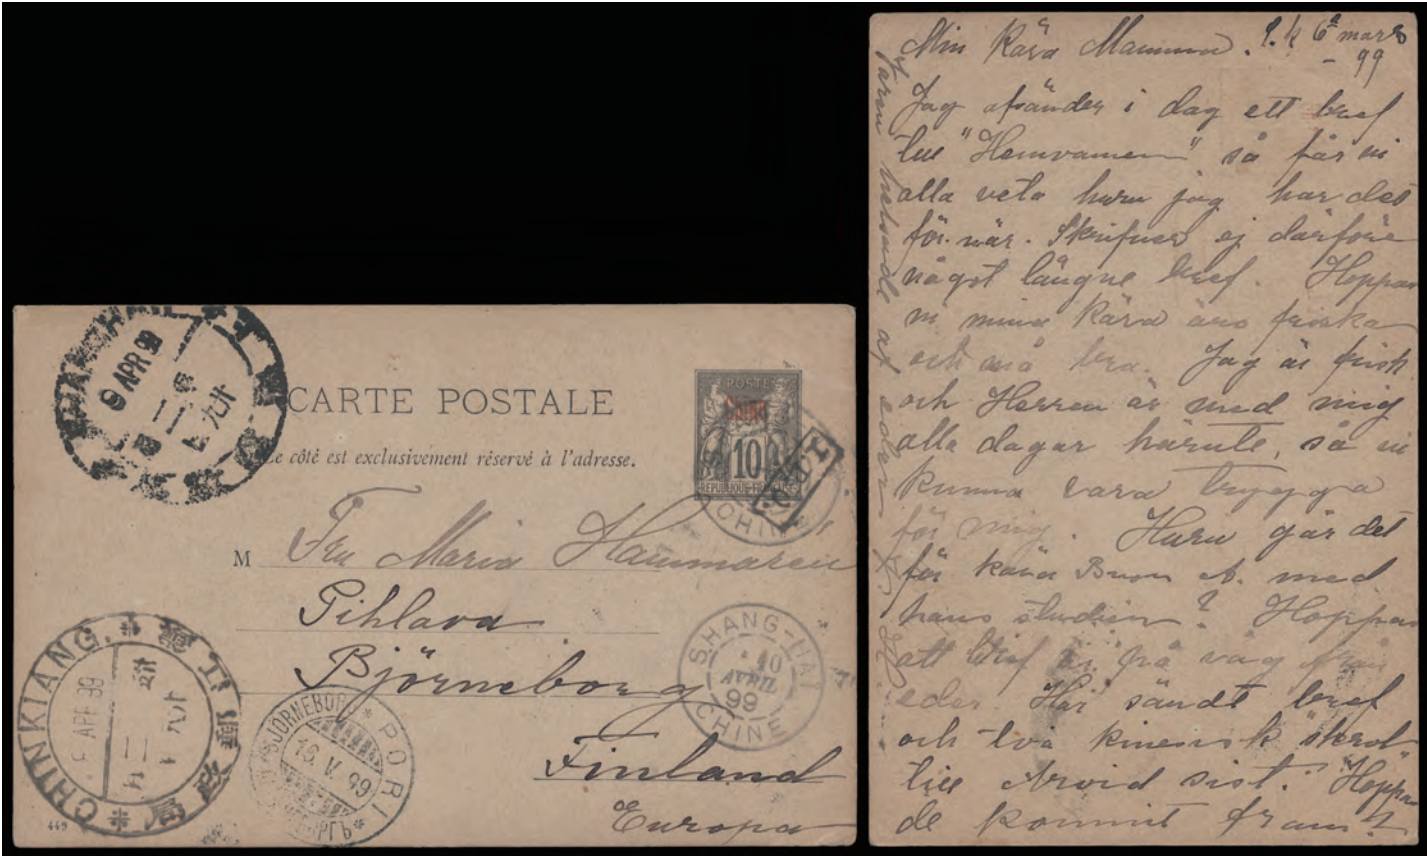 CARTE POSTALE
Ce côté est exclusivement réservé à l'adresse.
POSTES
Chine
10
REPUBLIQUE FRANÇAISE
I.P.O.
CHINE
SHANGHAI
9 APR 99
M Fru Maria Hammarén
Pihlava
Björneborg
Finland
Europa
SHANG-HAI
10
AVRIL
99
CHINE
CHINKIANG.
APR 99
449
BJÖRNEBORG * PORI
V. 99
Min Kära Mamma. 6 mars
99
Jag afsänder i dag ett bref
till så får ni
alla veta huru jag har det
för när. Skrifver ej därföre
något längre bref. Hoppas
ni mina Kära äro friska
och må bra. Jag är frisk
och Herren är med mig
alla dagar härute, så ni
Kunna vara trygga
för mig. Huru går det
för kära med
hans studier? Hoppas
att bref är på väg från
eder. Har sändt bref
och två kinesisk
till Arvid sist. Hoppas
de kommit fram?
Varen af eder